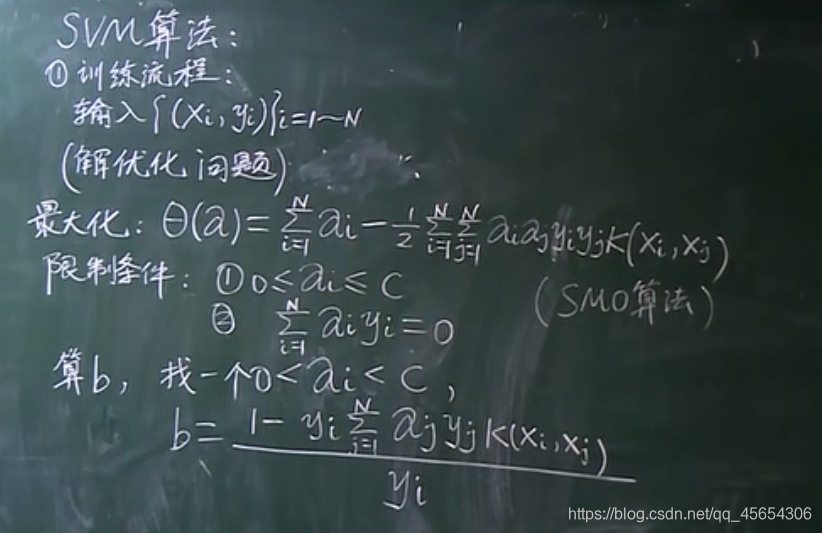 SVM算法:
① 训练流程:
输入{(Xi, yi)}i=1~N
(解优化问题)
最大化: θ(a)=∑_{i=1}^{N} ai - 1/2 ∑_{i=1}^{N}∑_{j=1}^{N} aiajyiyjK(Xi, Xj)
限制条件: ① 0≤ai≤C
(SMO算法)
② ∑_{i=1}^{N} aiyi=0
算b, 找一个0<ai<C,
b= (1- yi∑_{j=1}^{N} ajyjK(Xi,Xj)) / yi
https://blog.csdn.net/qq_45654306